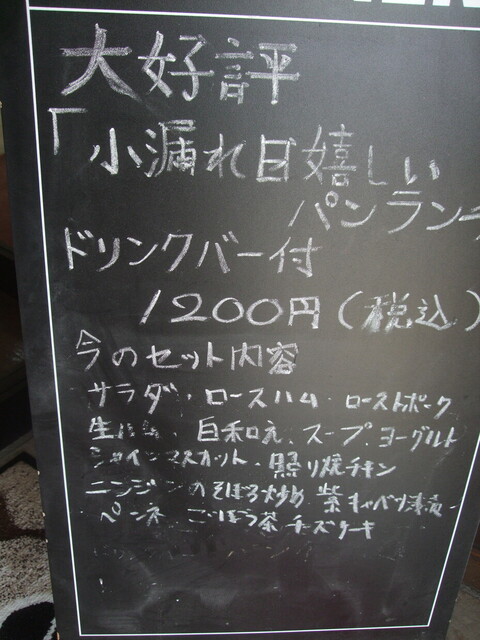 大好評
「小漏れ日嬉しい
パンランチ
ドリンクバー付
1200円(税込)
今のセット内容
サラダ・ロースハム・ローストポーク
生ハム、白和え、スープ、ヨーグルト
シャインマスカット・照り焼チキン
ニンジンのそぼろ炒め・紫キャベツ漬・
ペンネ・ごぼう茶チーズケーキ